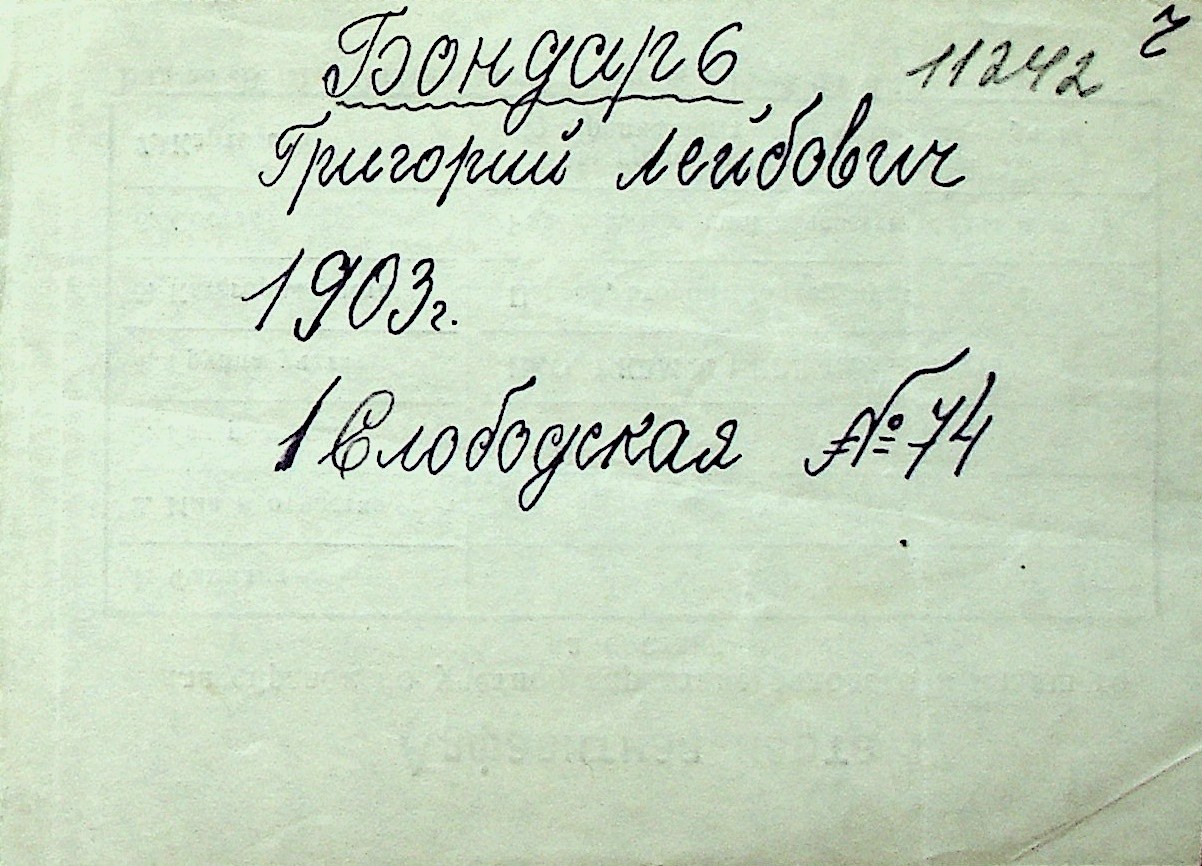 Бондарь 11242
Григорий Лейбович
1903г.
1 Слободская № 74